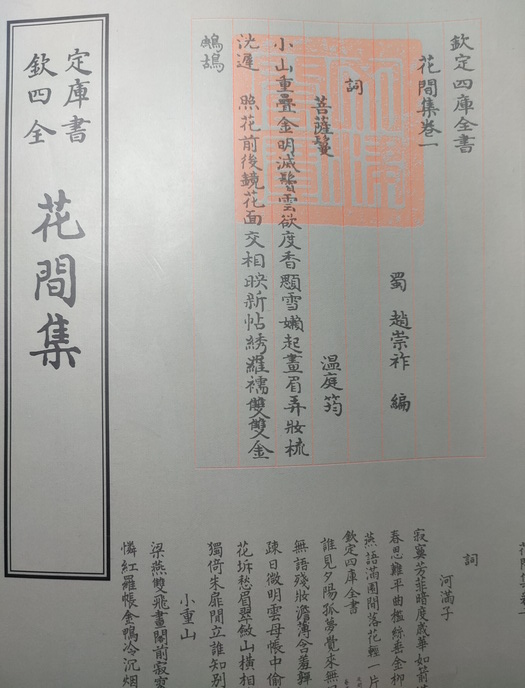 欽定四庫全書
花間集卷一
蜀 趙崇祚 編
詞
菩薩蠻 温庭筠
小山重疊金明滅鬢雲欲度香顋雪嬾起畫眉弄妝梳
洗遲 照花前後鏡花面交相映新帖綉羅襦雙雙金
鷓鴣
欽定四庫全書
花間集
詞
河滿子
寂寞芳菲暗度歲華如箭
春思難平曲檻絲垂金柳
燕語滿園閒落花輕一片
欽定四庫全書
誰見夕陽孤夢覺來無
無語殘妝澹薄含羞嚲
疎日微明雲母帳中偷
花坼愁眉翠斂山橫相
獨倚朱扉閒立誰知別
小重山
梁燕雙飛畫閣前寂寥
憐紅羅帳金鴨冷沉烟